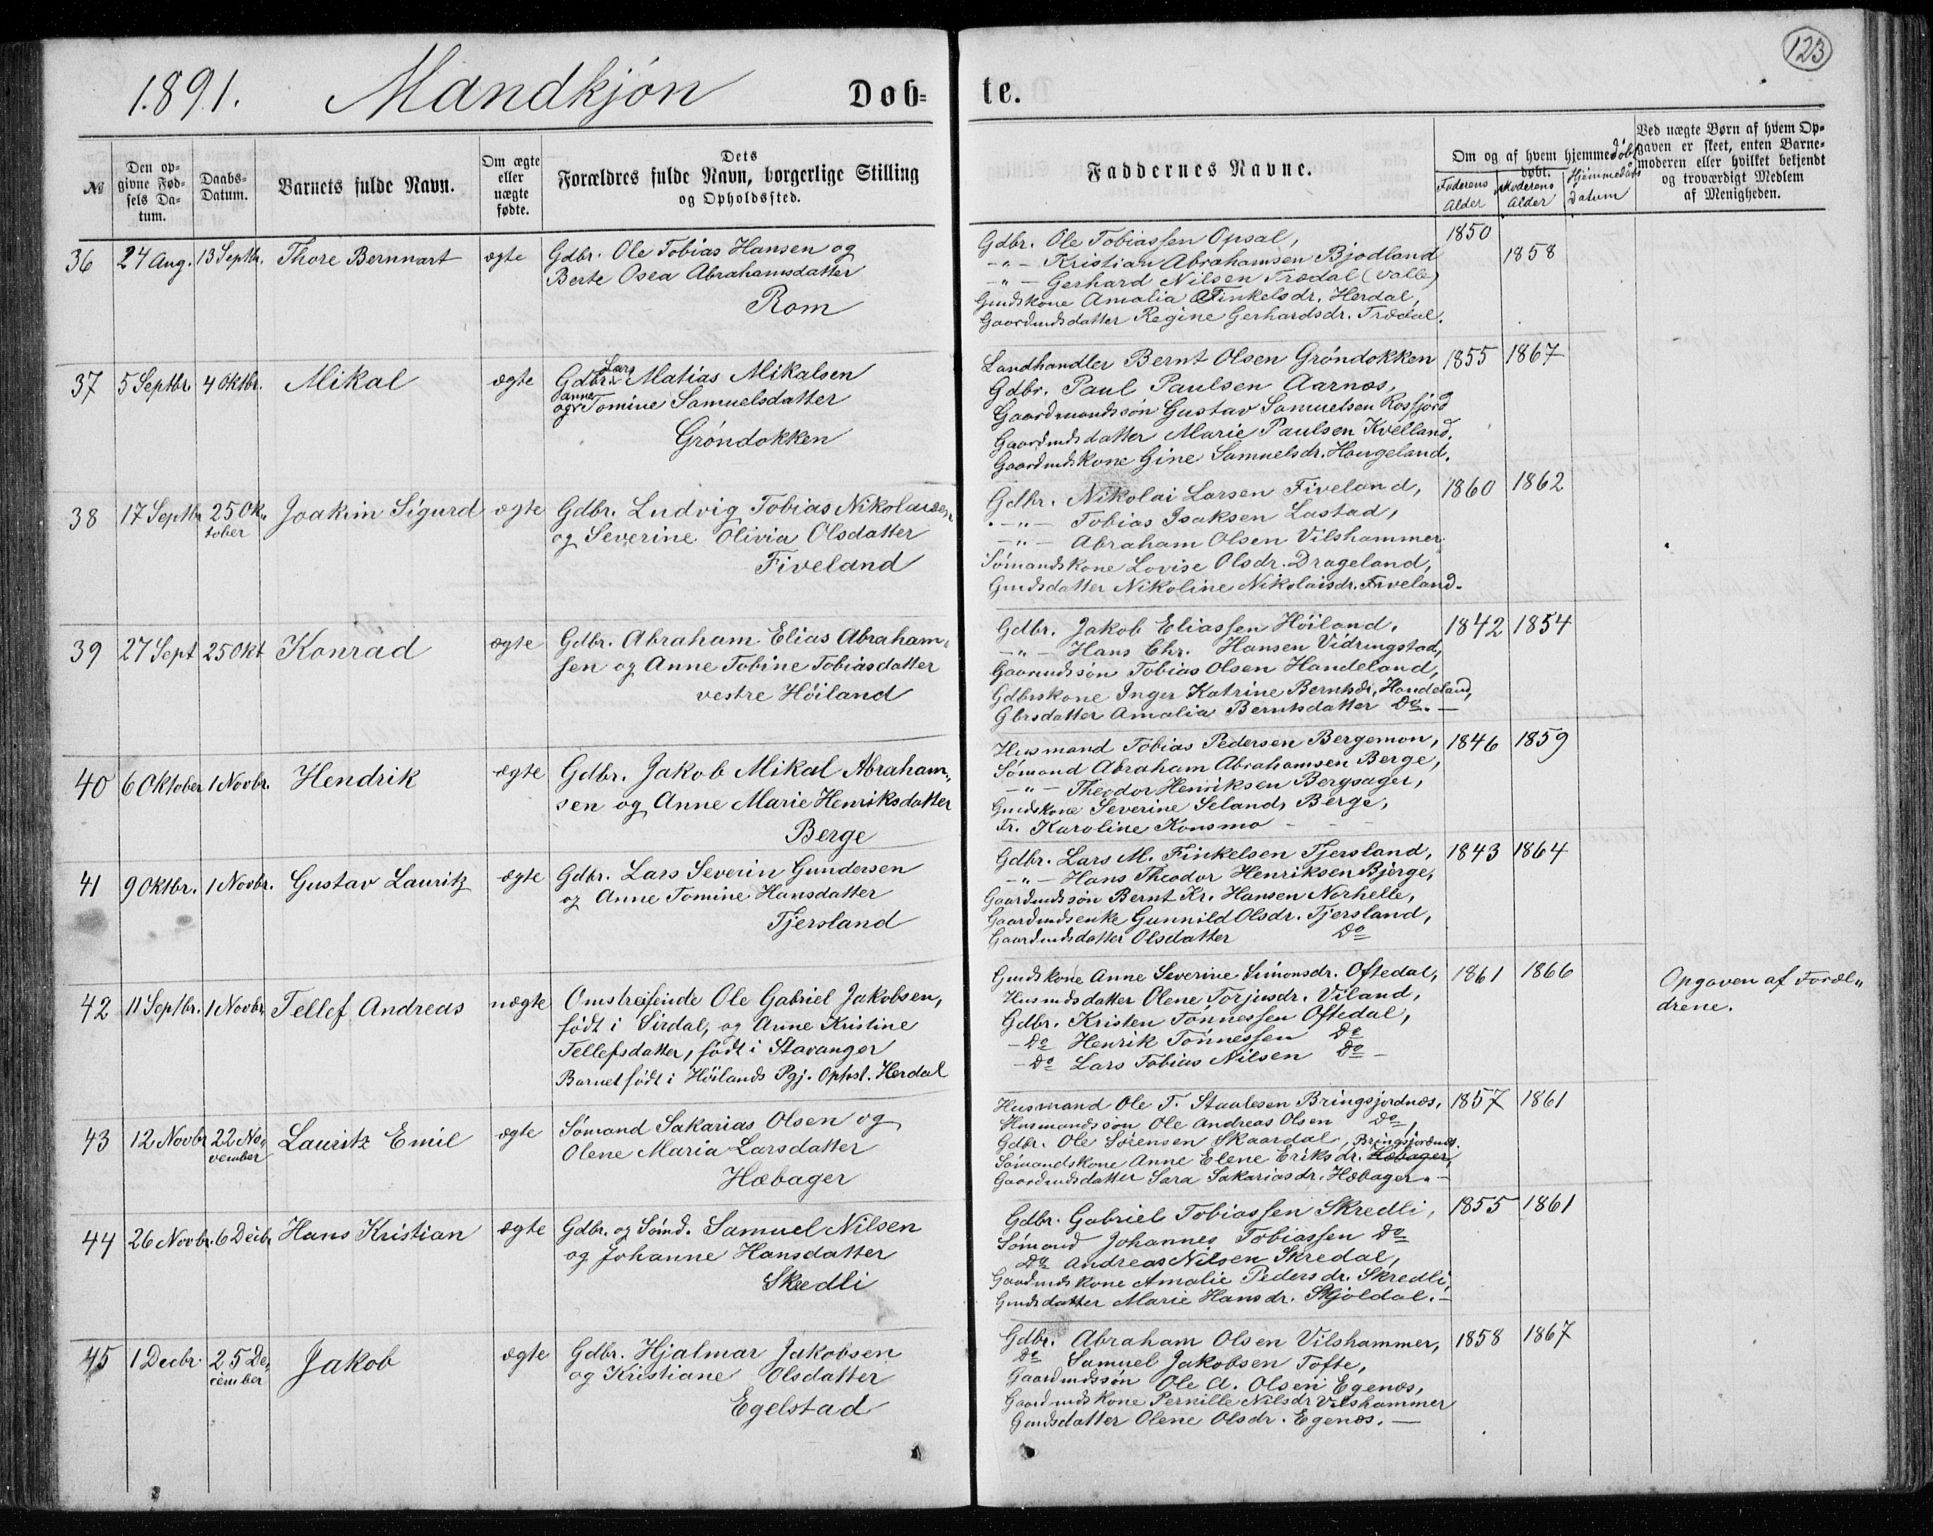 123
1891. Mandkjön Døb= te.
№
Den op=
givne Fød=
sels Da=
tum.
Daabs=
Datum.
Barnets fulde Navn.
Om ægte
eller
uægte
fødte.
Dets
Forældres fulde Navn, borgerlige Stilling
og Opholdssted.
Faddernes Navne.
Om og af hvem hjemmedøbt
døbt.
Faderens
Alder
Moderens
Alder
Hjemmedaabs
Datum
Ved uægte Børn af hvem Op=
gaven er skeet, enten Barne=
moderen eller hvilket bekjendt
og troværdigt Medlem
af Menigheden.
36 24 Aug. 13 Septbr. Thore Bernnart ægte
Gdbr. Ole Tobias Hansen og
Berte Osea Abrahamsdatter
Rom
Gdbr. Ole Tobiassen Opsal,
-"- Kristian Abrahamsen Bjodland
-"- Gerhard Nilsen Trædal (Valle)
Gmdskone Amalia Finkelsdr. Herdal,
Gaardmdsdatter Regine Gerhardsdr. Trædal.
1850 1858
37 5 Septbr. 4 Oktbr. Mikal ægte
Gdbr. Lars Matias Mikalsen
og Anne Tomine Samuelsdatter
Gröndokken
Landhandler Bernt Olsen Gröndokken
Gdbr. Paul Paulsen Aarnæs,
Gaardmandssön Gustav Samuelsen Rosfjord
Gaardmdsdatter Marie Paulsen Kvelland,
Gaardmdskone Gine Samuelsdr. Haugeland.
1855 1867
38 17 Septbr 25 Ok„
tober Joakim Sigurd ægte
Gdbr. Ludvig Tobias Nikolaisen
og Severine Olivia Olsdatter
Fiveland
Gdbr. Nikolai Larsen Fiveland,
-"- Tobias Isaksen Lastad,
-"- Abraham Olsen Vilshammer
Sömandskone Lovise Olsdr. Drageland,
Gmdsdatter Nikoline Nikolaisdr. Fiveland.
1860 1862
39 27 Sept 25 Okt Konrad ægte
Gdbr. Abraham Elias Abraham„
sen og Anne Tobine Tobiasdatter
vestre Höiland
Gdbr. Jakob Eliassen Höiland,
-"- Hans Chr. Hansen Vidringstad,
Gaarmdssön Tobias Olsen Handeland,
Gdbrskone Inger Katrine Berntsdr, Handeland,
Gbrsdatter Amalia Berntsdatter Do. —
1842 1854
40 6 Oktober 1 Novbr. Hendrik ægte
Gdbr. Jakob Mikal Abraham„
sen og Anne Marie Henriksdatter
Berge
Husmand Tobias Pedersen Bergemon,
Sömand Abraham Abrahamsen Berge,
-"- Theodor Henriksen Bergsager,
Gmdskone Severine Selands Berge,
Fr. Karoline Konsmo
1846 1859
41 9 Oktbr. 1 Novbr. Gustav Lauritz ægte
Gdbr. Lars Severin Gundersen
og Anne Tomine Hansdatter
Tjersland
Gdbr. Lars M. Finkelsen Tjersland,
-"- Hans Theodor Henriksen Bjerge,
Gaardmdssön Bernt Kr. Hansen Norhelle,
Gaardmdsenke Gunnild Olsdr. Tjersland,
Gaardmdsdatter Olsdatter Do
1843 1864
42 11 Septbr. 1 Novbr Tellef Andreas uægte
Omstreifende Ole Gabriel Jakobsen,
födt i Sirdal, og Anne Kristine
Tellefsdatter, födt i Stavanger
Barnet födt i Höilands Pgj. Opfost. Herdal
Gmdskone Anne Severine Simonsdr. Oftedal,
Husmdsdatter Olene Torjusdr. Viland,
Gdbr. Kristen Tönnessen Oftedal,
- Do Henrik Tönnessen Do
- Do Lars Tobias Nilsen Do -
1861 1866
Opgaven af Foræl„
drene.
43 12 Novbr 22 No„
vember Lauritz Emil ægte
Sömand Sakarias Olsen og
Olene Maria Larsdatter
Hæbager
Husmand Ole T. Staalesen Bringsjordnæs,
Husmandssön Ole Andreas Olsen Do,
Gdbr. Ole Sörensen Skaardal, Bringsjordnæs.
Sömandskone Anne Elene Eriksdr. Hæbager,
Gaardmdsdatter Sara Sakariasdr. Hæbager. -
1857 1861
44 26 Novbr. 6 Decbr Hans Kristian ægte
Gdbr. og Sömd. Samuel Nilsen
og Johanne Hansdatter
Skredli
Gdbr. Gabriel Tobiassen Skredli,
Sömand Johannes Tobiassen Do
Do Andreas Nilsen Skredal,
Gaardmdskone Amalie Pedersdr. Skredli,
Gmdsdatter Marie Hansdr. Skjoldal. -
1855 1861
45 1 Decbr. 25 De„
cember Jakob ægte
Gdbr. Hjalmar Jakobsen
og Kristiane Olsdatter
Egelstad
Gdbr. Abraham Olsen Vilshammer,
Do Samuel Jakobsen Tofte,
Gaardmdssön Ole A. Olsen Egenæs,
Gaardmdskone Pernille Nilsdr Vilshammer
Gmdsdatter Olene Olsdr. Egenæs. —
1858 1867